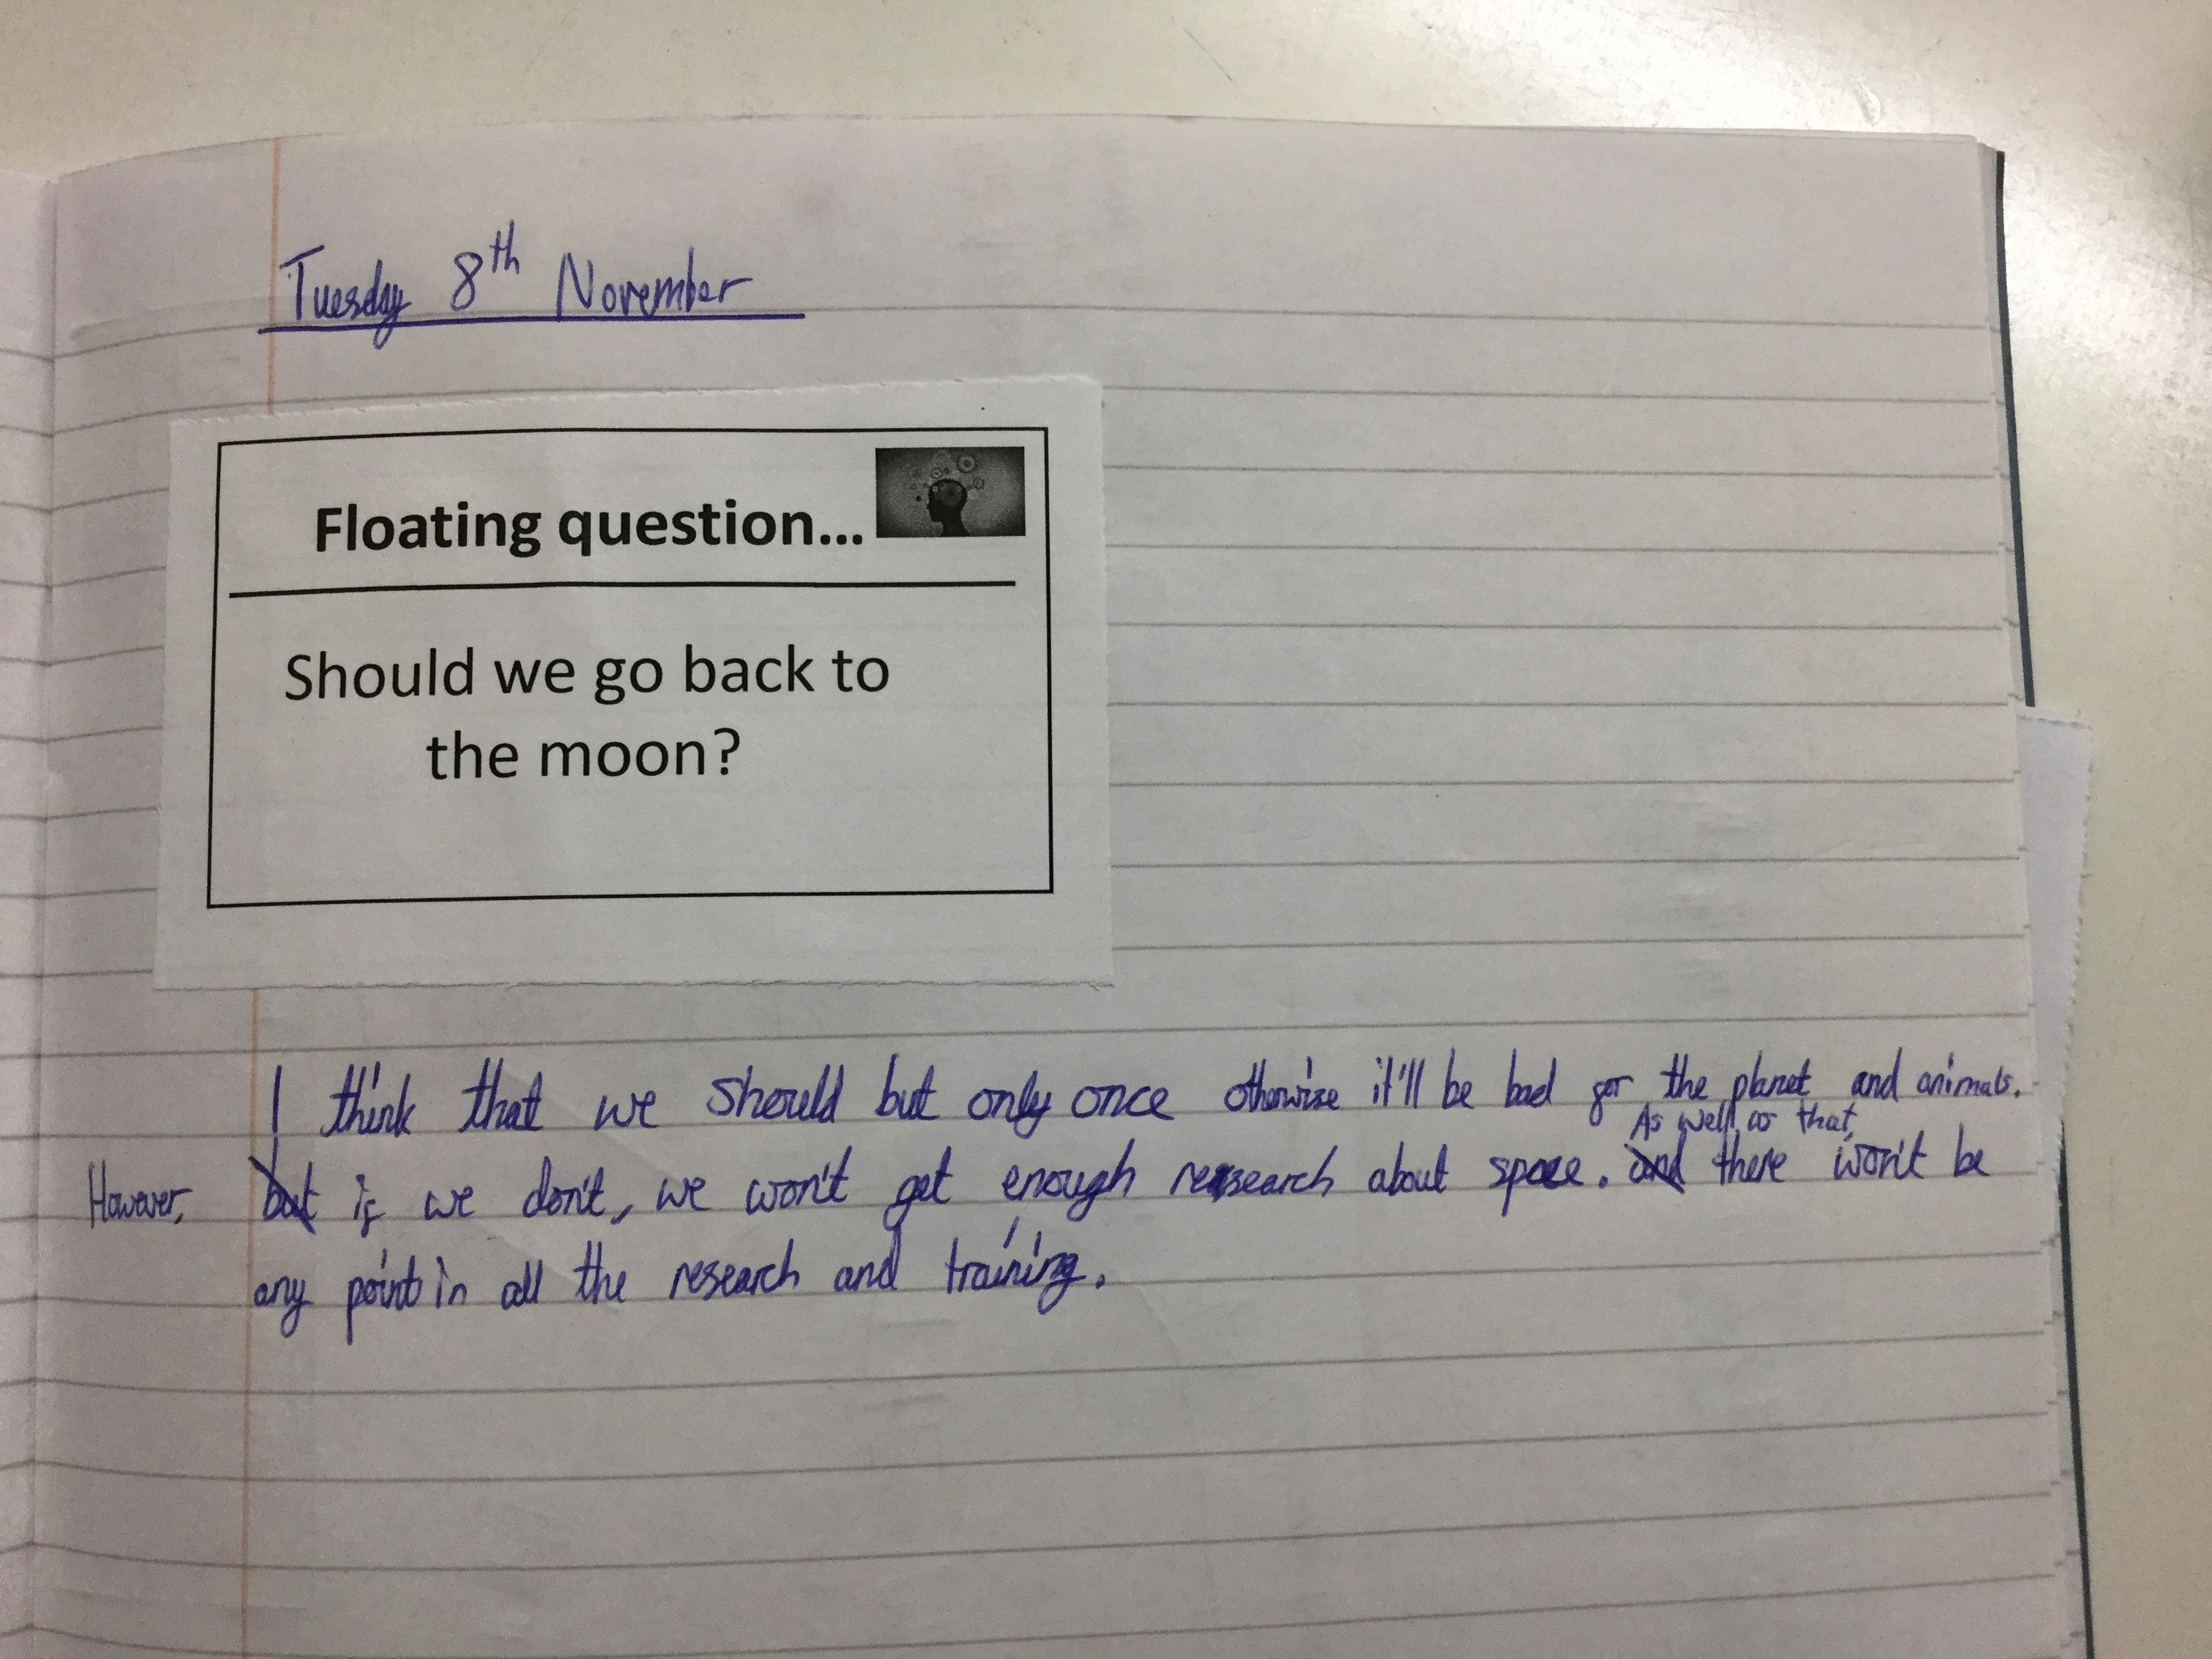 Tuesday 8th November
Floating question...
Should we go back to
the moon?
I think that we should but only once otherwise it'll be bad for the planet and animals.
As well as that,
However, but if we don't, we won't get enough research about space. and there won't be
any point in all the research and training.